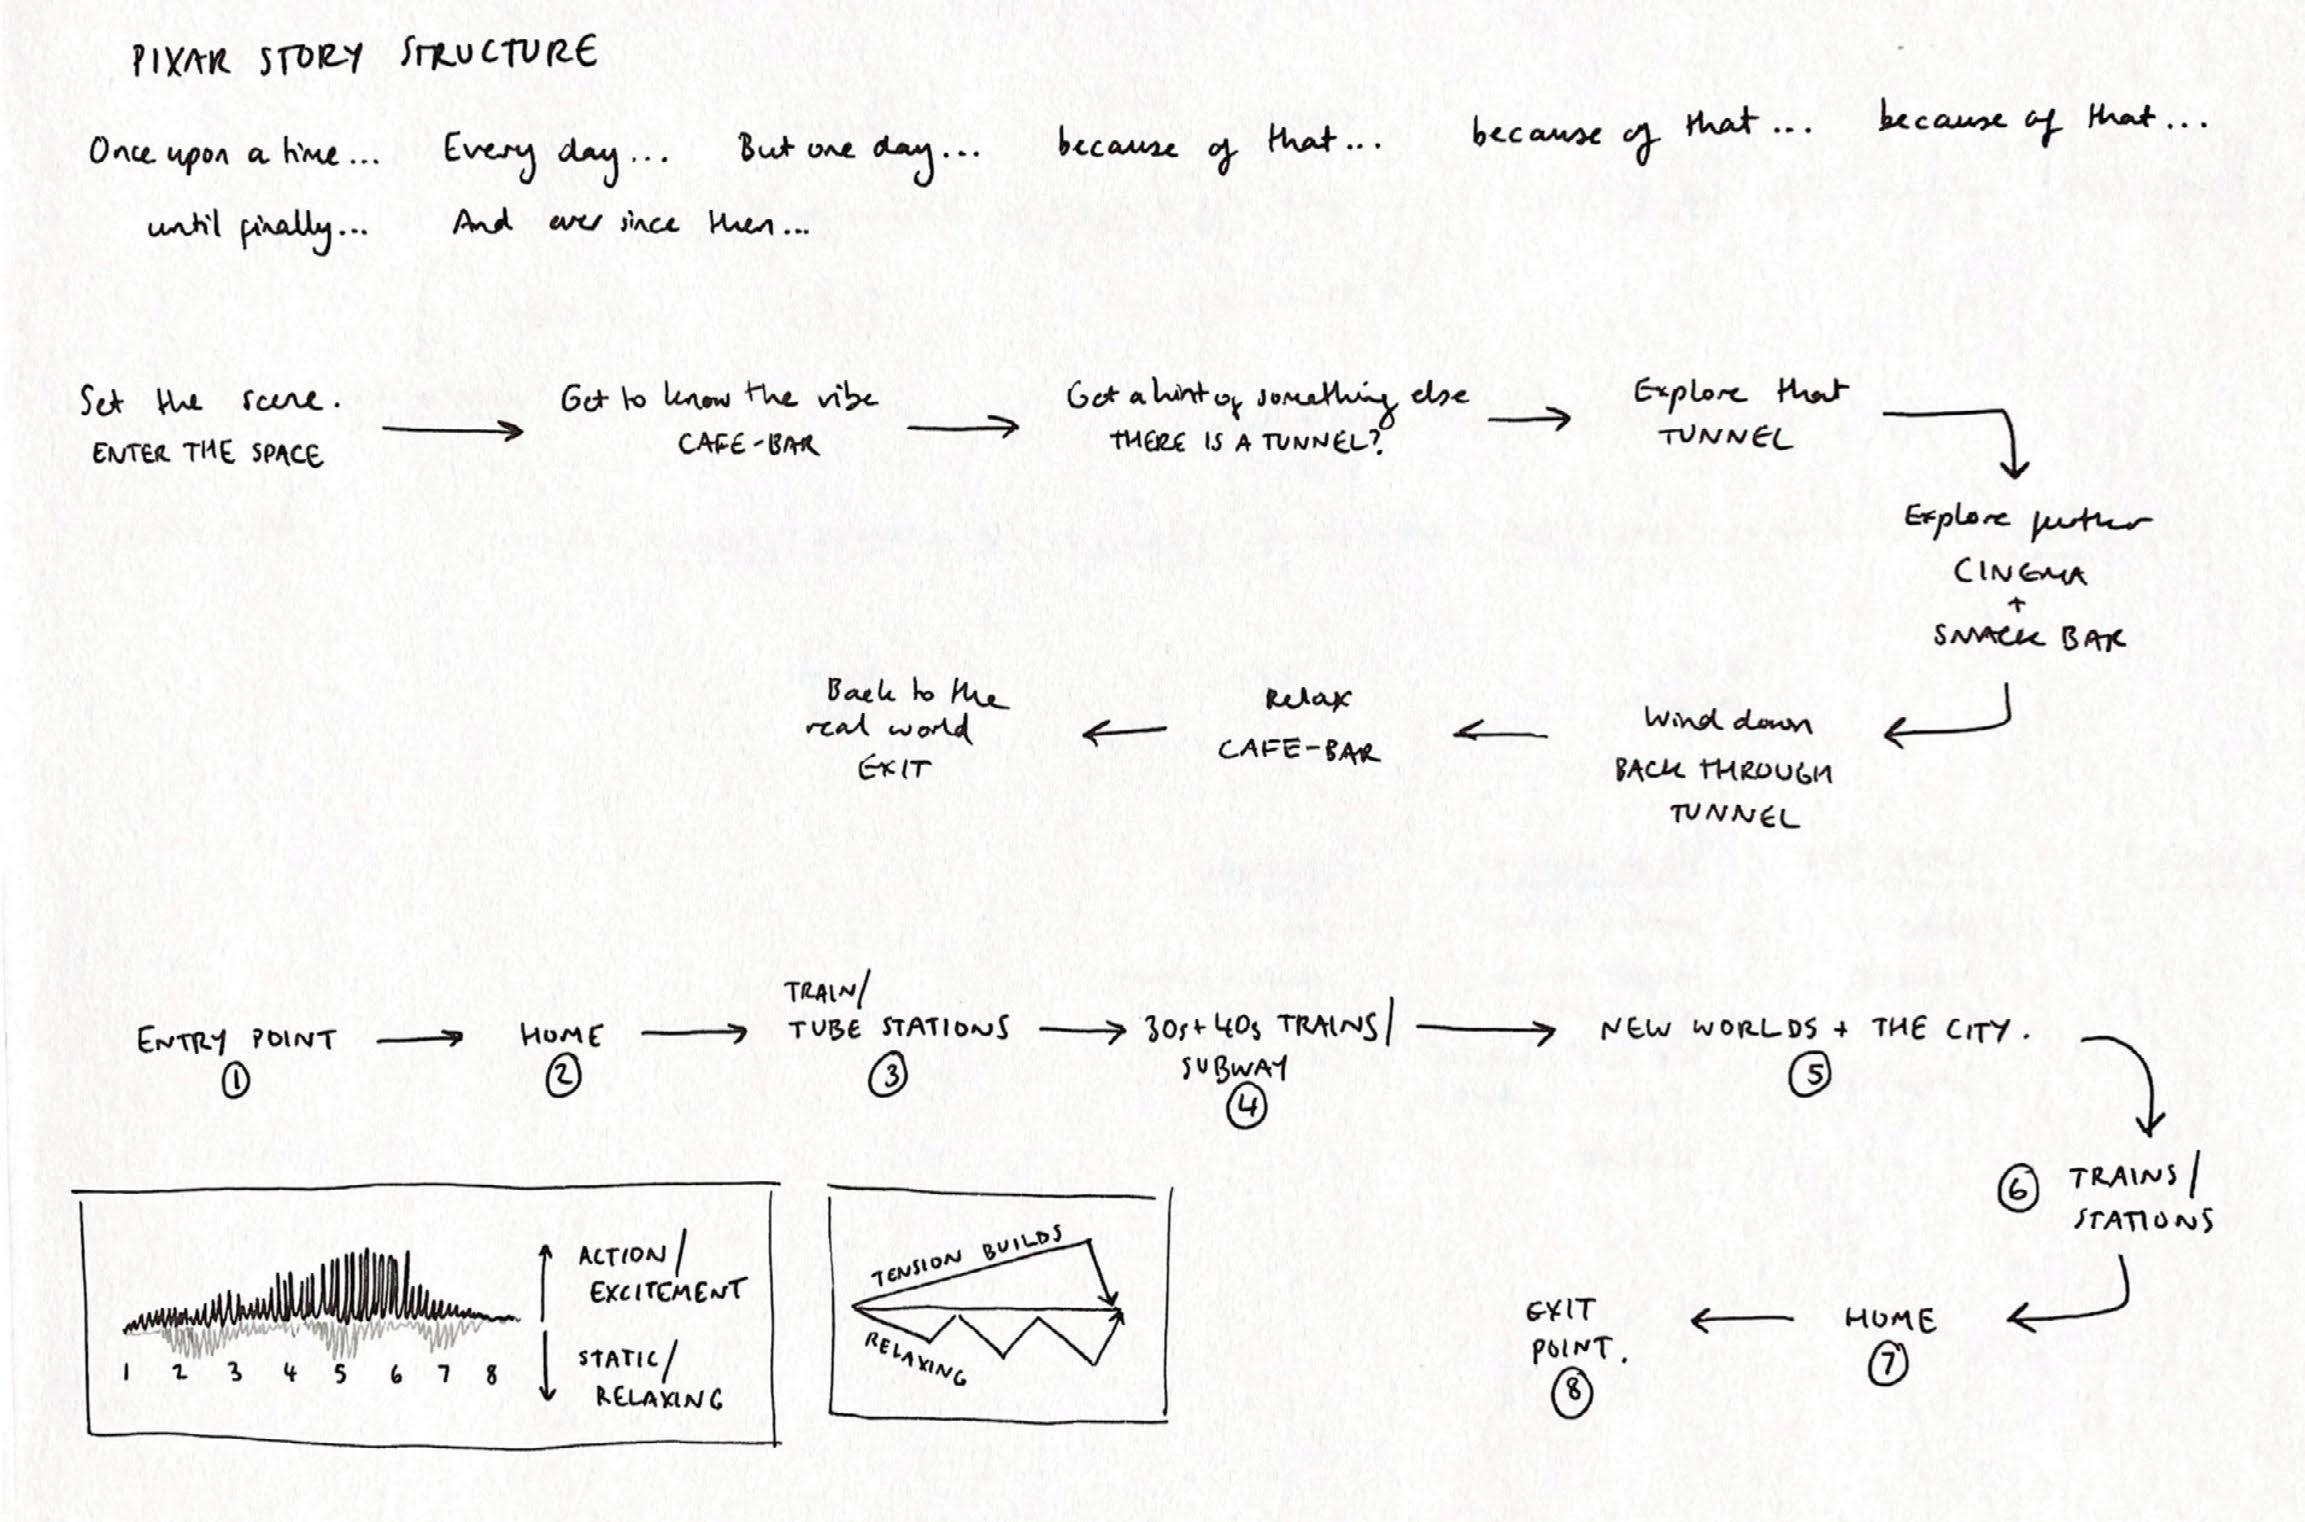 PIXAR STORY STRUCTURE
Once upon a time... Every day... But one day... because of that... because of that... because of that...
until finally... And ever since then...
Set the scene. Get to know the vibe Get a hint of something else Explore that
ENTER THE SPACE CAFE-BAR THERE IS A TUNNEL? TUNNEL
Explore further
CINEMA
+
SNACK BAR
Wind down
BACK THROUGH
TUNNEL
Relax
CAFE-BAR
Back to the
real world
EXIT
ENTRY POINT
1
HOME
2
TRAIN/
TUBE STATIONS
3
30s + 40s TRAINS/
SUBWAY
4
NEW WORLDS + THE CITY.
5
6 TRAINS/
STATIONS
HOME
7
EXIT
POINT.
8
ACTION/
EXCITEMENT
STATIC/
RELAXING
1 2 3 4 5 6 7 8
TENSION BUILDS
RELAXING